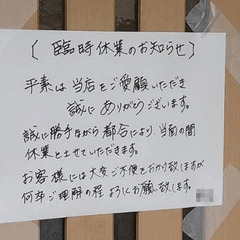 〔臨時休業のお知らせ〕
平素は当店をご愛顧いただき
誠にありがとうございます。
誠に勝手ながら都合により、当面の間
休業とさせていただきます。
お客様には大変ご不便をおかけ致しますが
何卒ご理解の程よろしくお願い致します。